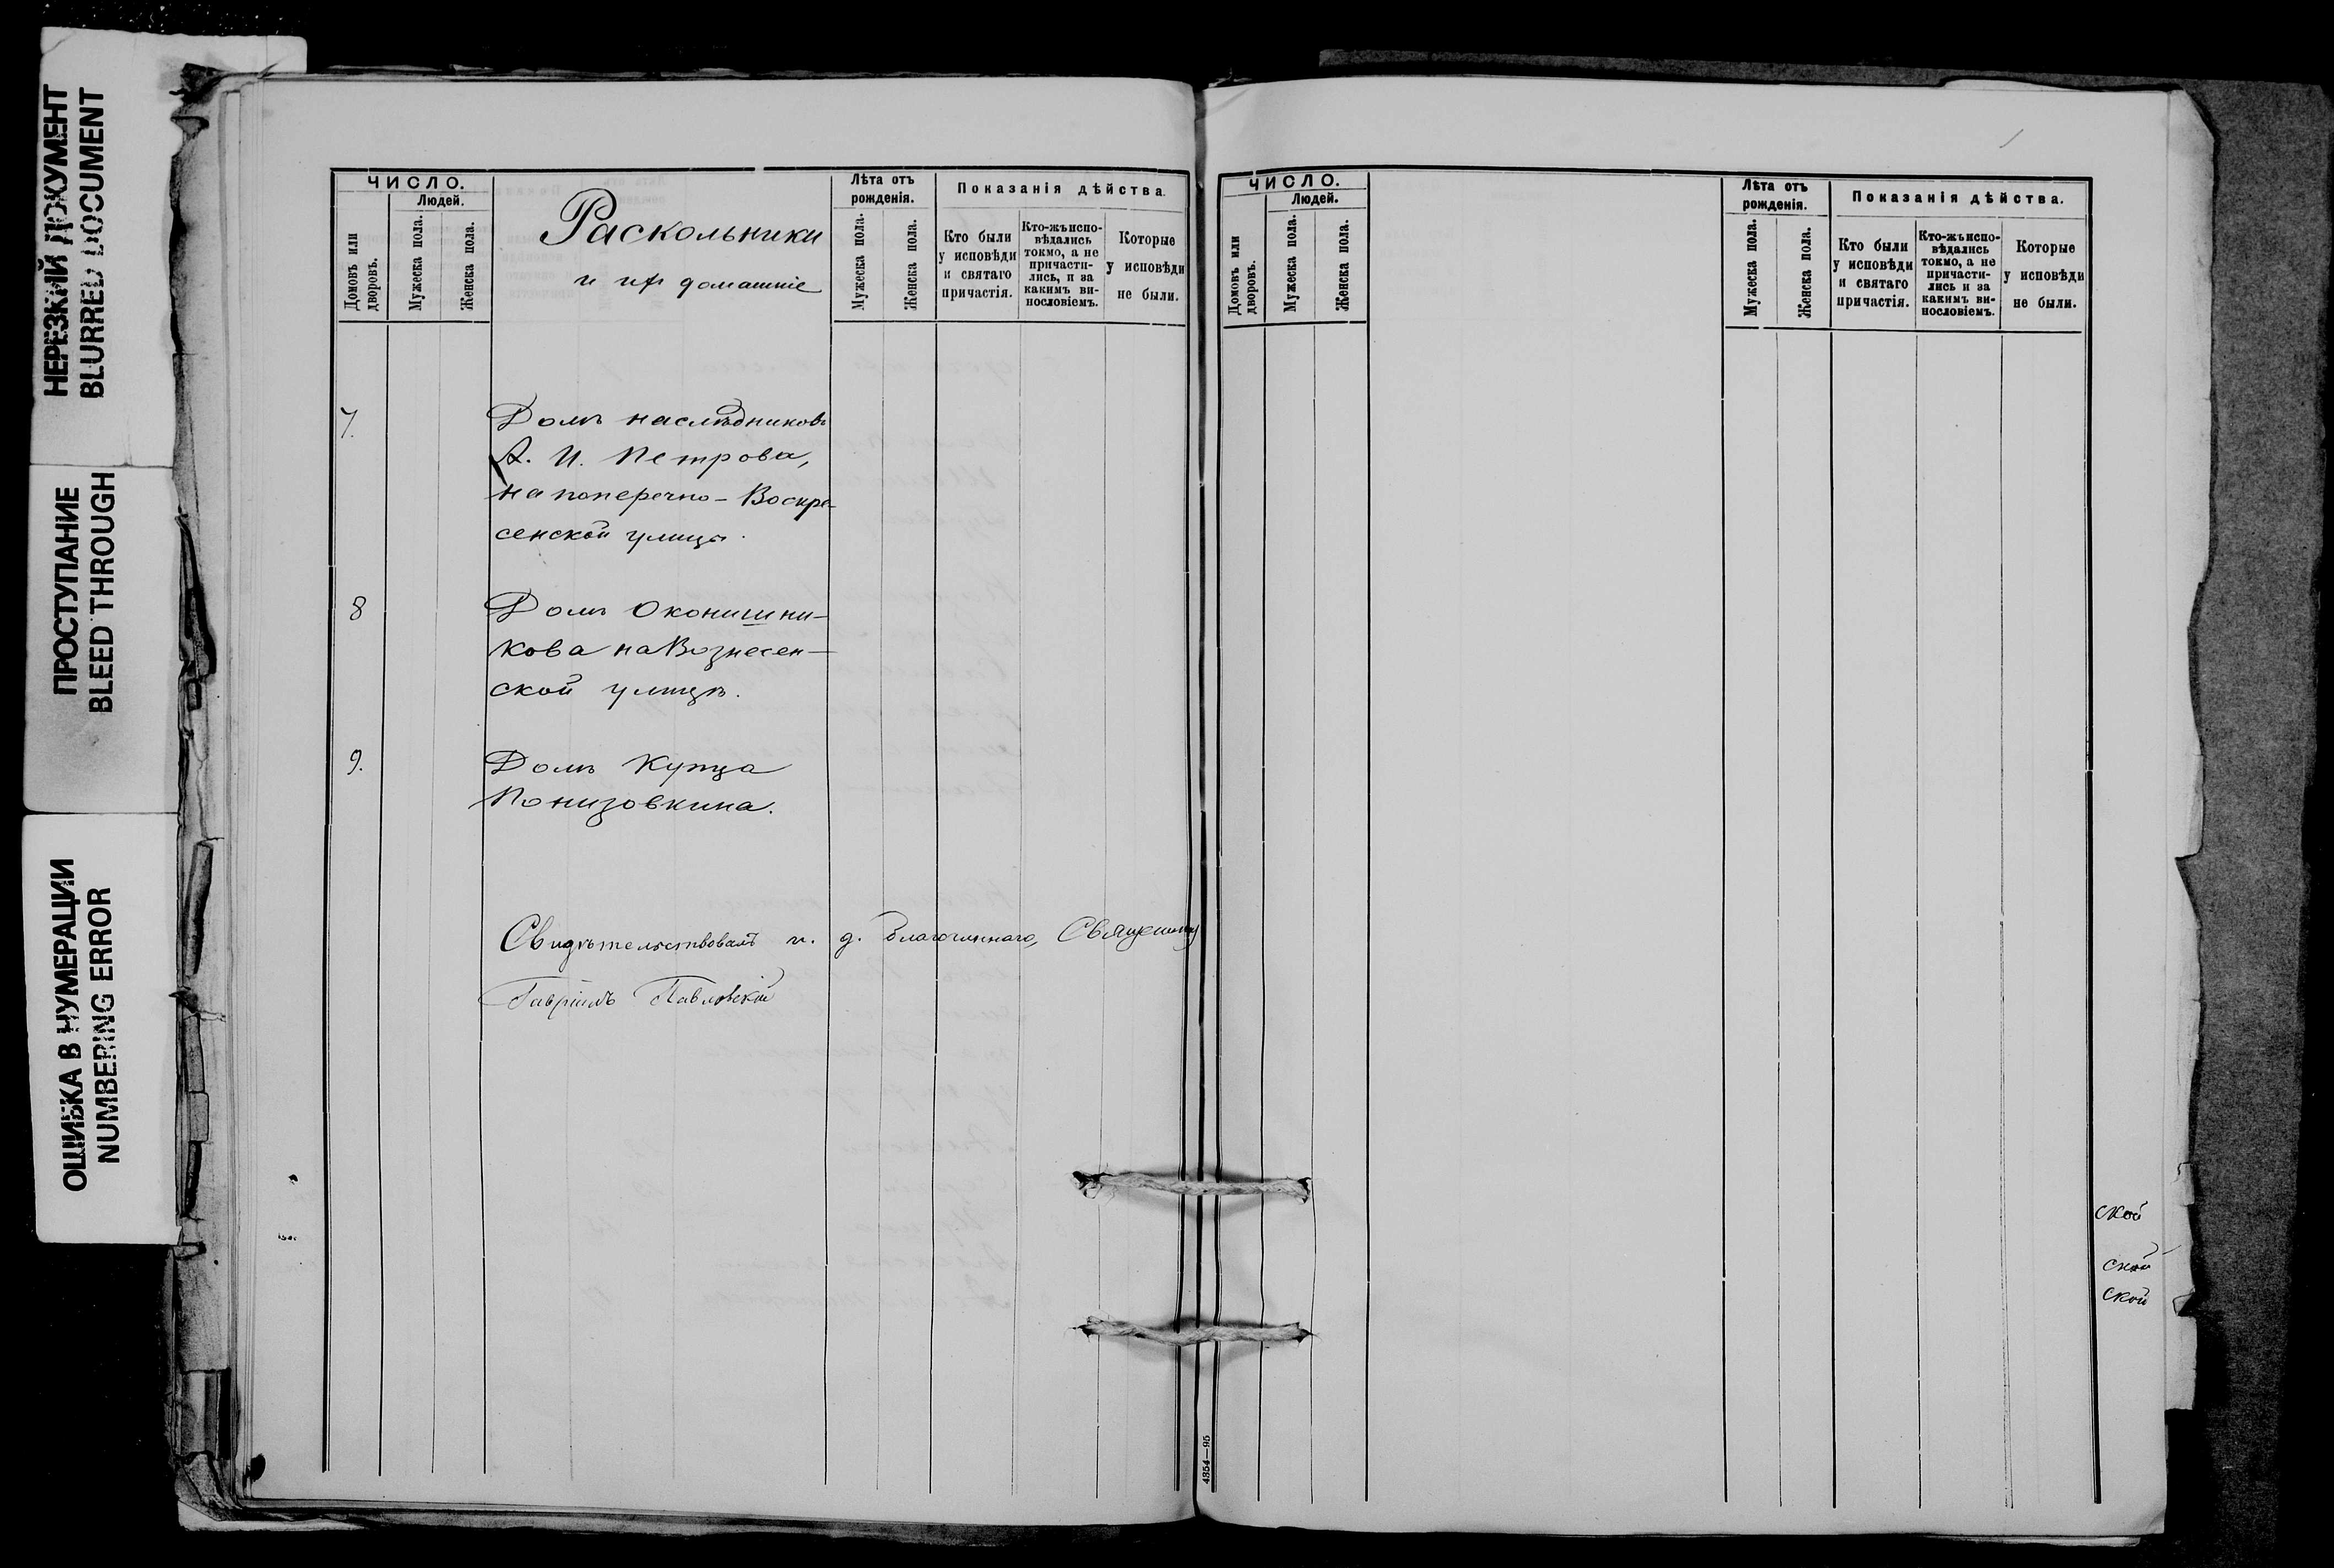 НЕРЕЗКИЙ ДОКУМЕНТ
BLURRED DOCUMENT
ПРОСТУПАНИЕ
BLEED THROUGH
ОШИБКА В НУМЕРАЦИИ
NUMBERING ERROR
ЧИСЛО.
Людей.
Домовъ или дворовъ.
Мужеска пола.
Женска пола.
Раскольники
и ихъ домашніе
Лѣта отъ рожденія.
Мужеска пола.
Женска пола.
Показанія дѣйства.
Кто были у исповѣди и святаго причастія.
Кто-жъ испо-
вѣдались
токмо, а не
причасти-
лись, и за
какимъ ви-
нословіемъ.
Которые у исповѣди не были.
7.
Домъ наслѣдниковъ
А. И. Петрова,
на поперечно-Воскре-
сенской улицѣ.
8
Домъ Оконишни-
кова на Вознесен-
ской улицѣ.
9.
Домъ Купца
Понизовкина.
Свидѣтельствовалъ и. д. Благочиннаго, Священникъ
Гавріилъ Павловскій
ЧИСЛО.
Людей.
Домовъ или дворовъ.
Мужеска пола.
Женска пола.
Лѣта отъ рожденія.
Мужеска пола.
Женска пола.
Показанія дѣйства.
Кто были у исповѣди и святаго причастія.
Кто-жъ испо-
вѣдались
токмо, а не
причасти-
лись и за
какимъ ви-
нословіемъ.
Которые у исповѣди не были.
ской
ской
ской
4354—95